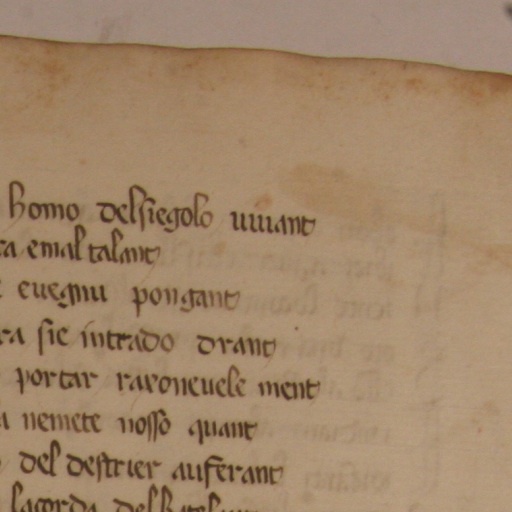 homo delsiegolo uiuant
ra emal talant
euegnu pongant
ra sie intrado drant
portar raxoneuele ment
nemete nosso quant
del destrier auferant
lacorda